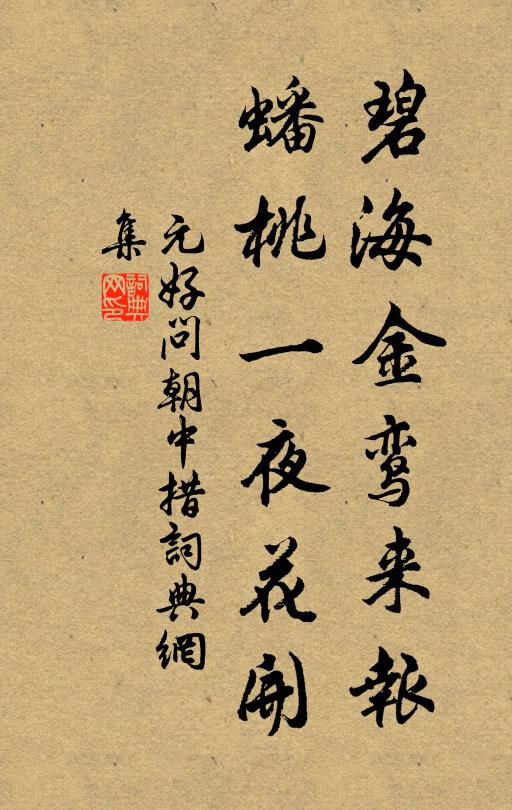 碧海金鸾来報
蟠桃一夜花開
元好问朝中措詞典網
集
詞典
网印